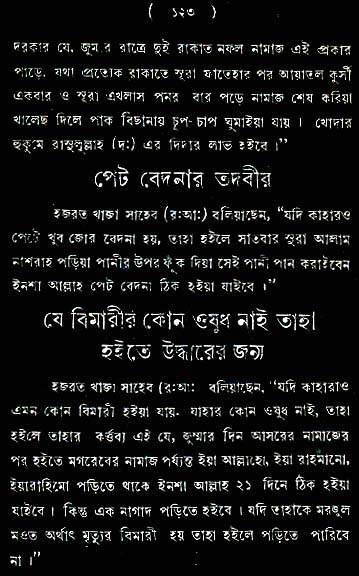 ( ১২৩ )
দরকার যে, জুমার রাত্রে দুই রাকাত নফল নামাজ এই প্রকার
পাড়ে, যথা প্রত্যেক রাকাতে সুরা ফাতেহার পর আয়াতুল কুর্সী
একবার ও সুরা এখলাস পনর বার পড়ে নামাজ শেষ করিয়া
খালেছ দিলে পাক বিছানায় চুপ-চাপ ঘুমাইয়া যায়। খোদার
হুকুমে রাসুলুল্লাহ (দ:) এর দিদার লাভ হইবে।”
পেট বেদনার তদবীর
হজরত খাজা সাহেব (র:আ:) বলিয়াছেন, “যদি কাহারও
পেটে খুব জোর বেদনা হয়, তাহা হইলে সাতবার সুরা আলাম
নাশরাহ পড়িয়া পানীর উপর ফুঁক দিয়া সেই পানী পান করাইবেন
ইনশা আল্লাহ পেট বেদনা ঠিক হইয়া যাইবে।”
যে বিমারীর কোন ওষুধ নাই তাহা
হইতে উদ্ধারের জন্য
হজরত খাজা সাহেব (র:আ: বলিয়াছেন, “যদি কাহারাও
এমন কোন বিমারী হইয়া যায়- যাহার কোন ওষুধ নাই, তাহা
হইলে তাহার কর্ত্তব্য এই যে, জুম্মার দিন আসরের নামাজের
পর হইতে মগরেবের নামাজ পর্য্যন্ত ইয়া আল্লাহো, ইয়া রাহমানো,
ইয়ারাহিমো পড়িতে থাকে ইনশা আল্লাহ ২১ দিনে ঠিক হইয়া
যাইবে। কিন্তু এক নাগাদ পড়িতে হইবে। যদি তাহাকে মরজুল
মওত অর্থাৎ মৃত্যুর বিমারী হয় তাহা হইলে পড়িতে পারিবে
না।”